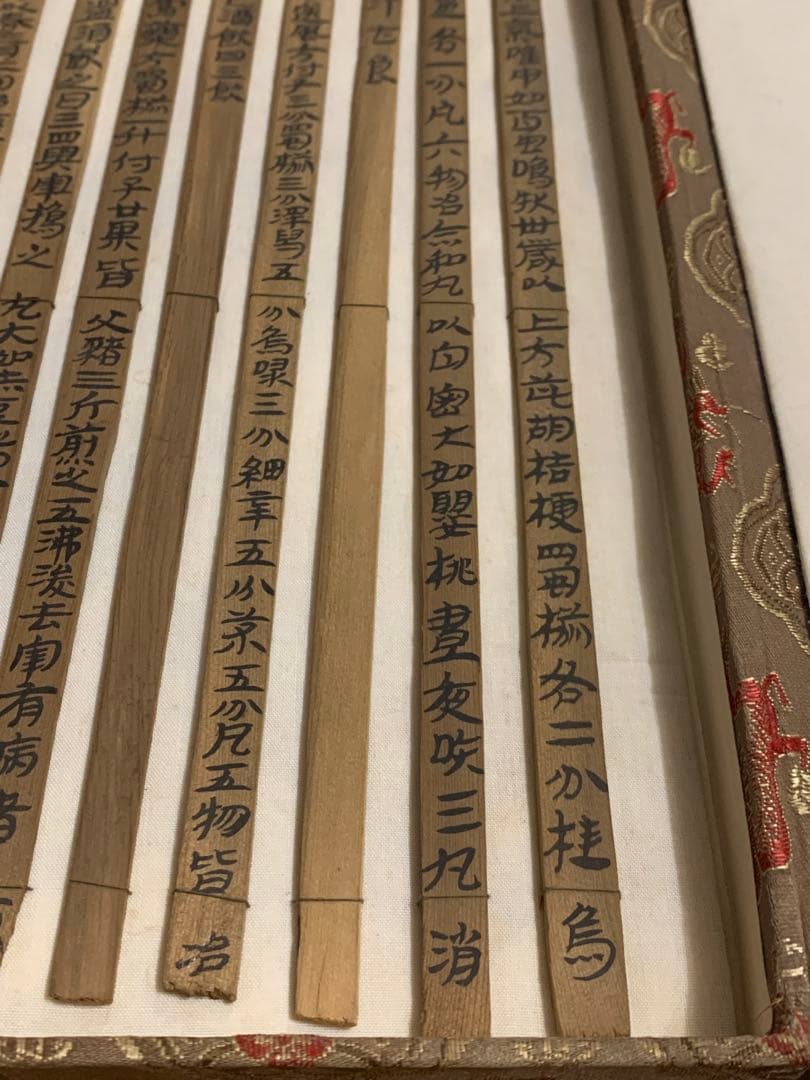 气喉中如百虫鳴狀卅歲以上方茈胡桔梗蜀椒各二分桂烏
各一分凡六物冶合和丸以白密大如嬰桃晝夜吮三丸消
汁甚良
遂風方付子三分蜀椒三分澤舄五分烏喙三分細辛五分茉五分凡五物皆冶
酒飲日三飲
膏藥方蜀椒一升付子廿果皆父豬三斤煎之五沸浚去宰有病者
溫洞飲之日三四與宰搗之丸大如赤豆